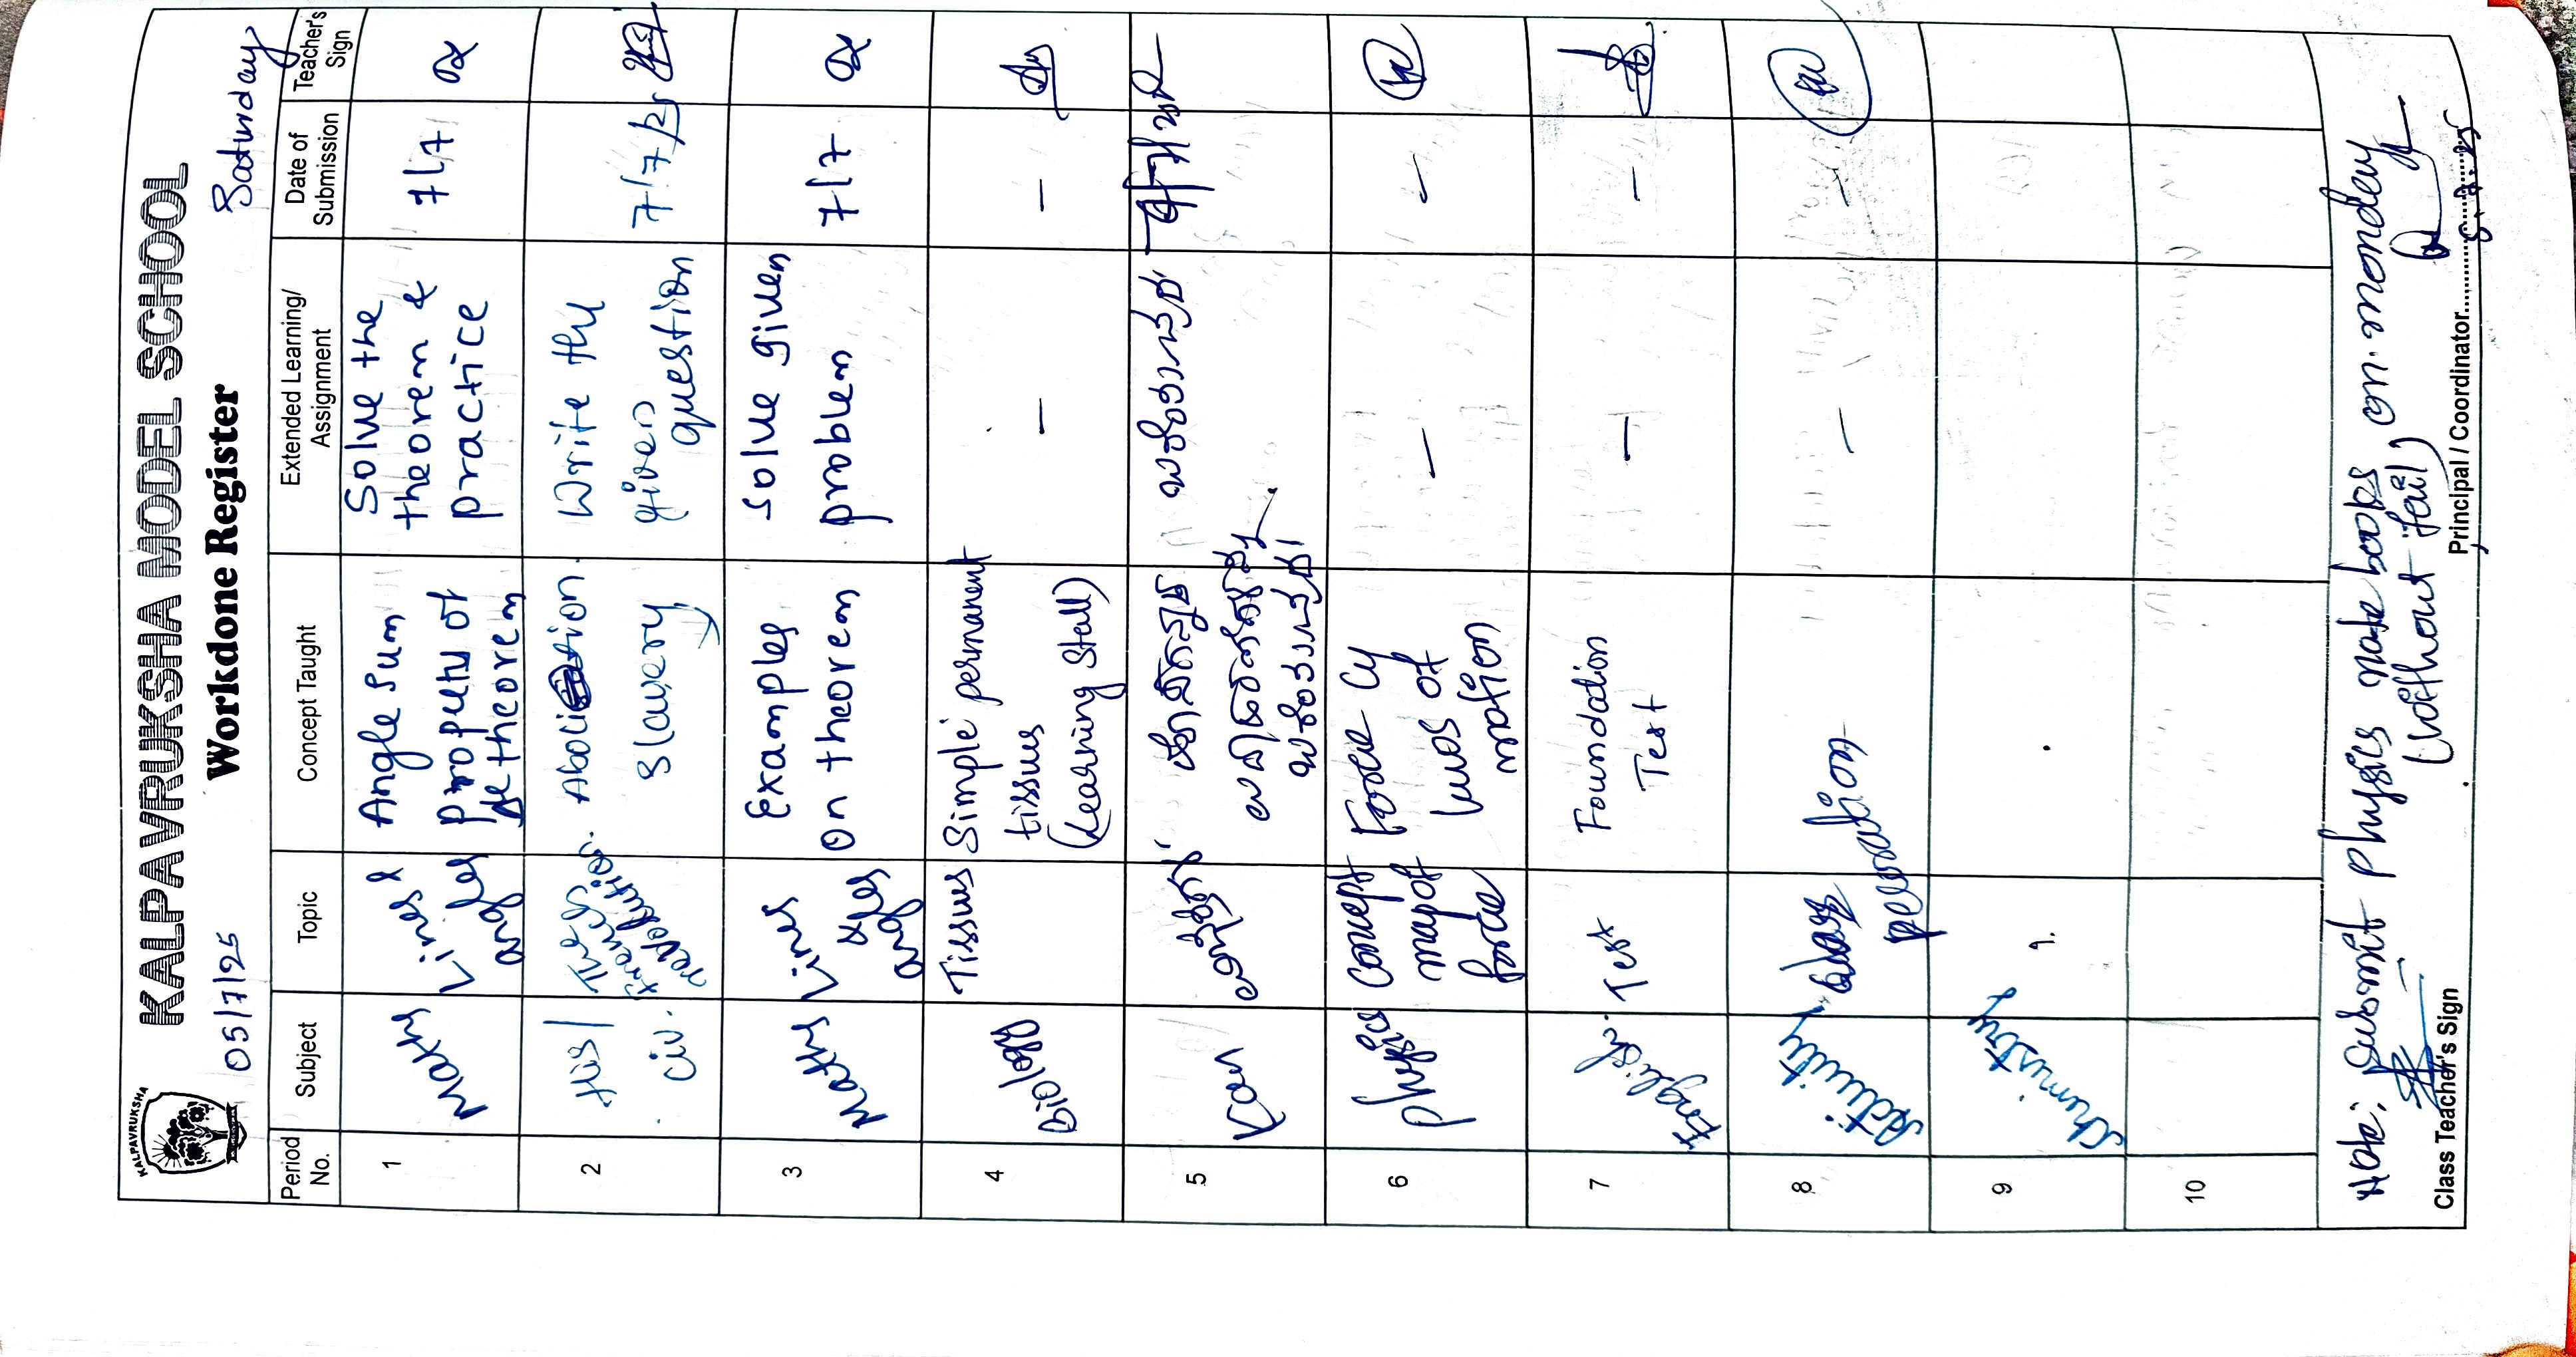 KALPAVRUKSHA
KALPAVRUKSHA MODEL SCHOOL
05/7/25 Workdone Register Saturday
Period No. Subject Topic Concept Taught Extended Learning/ Assignment Date of Submission Teacher's Sign
1 Maths Lines & angles Angle sum property of theorem Solve the theorem & practice 7/7
2 His/ civ. The french revolution. Abolition slavery Write the given question 7/7/25
3 Maths Lines & angles Examples on theorem Solve given problem 7/7
4 Biology Tissus Simple permanent tissus (Learning Stall) – –
5 Kan
6 Physics Concept map of force Force Cy laws of motion – –
7 English Test Foundation Test – –
8 Activity class decoration – –
9 Chemistry
10
Note: Submit physics note books on monday
(without fail)
Class Teacher's Sign Principal / Coordinator